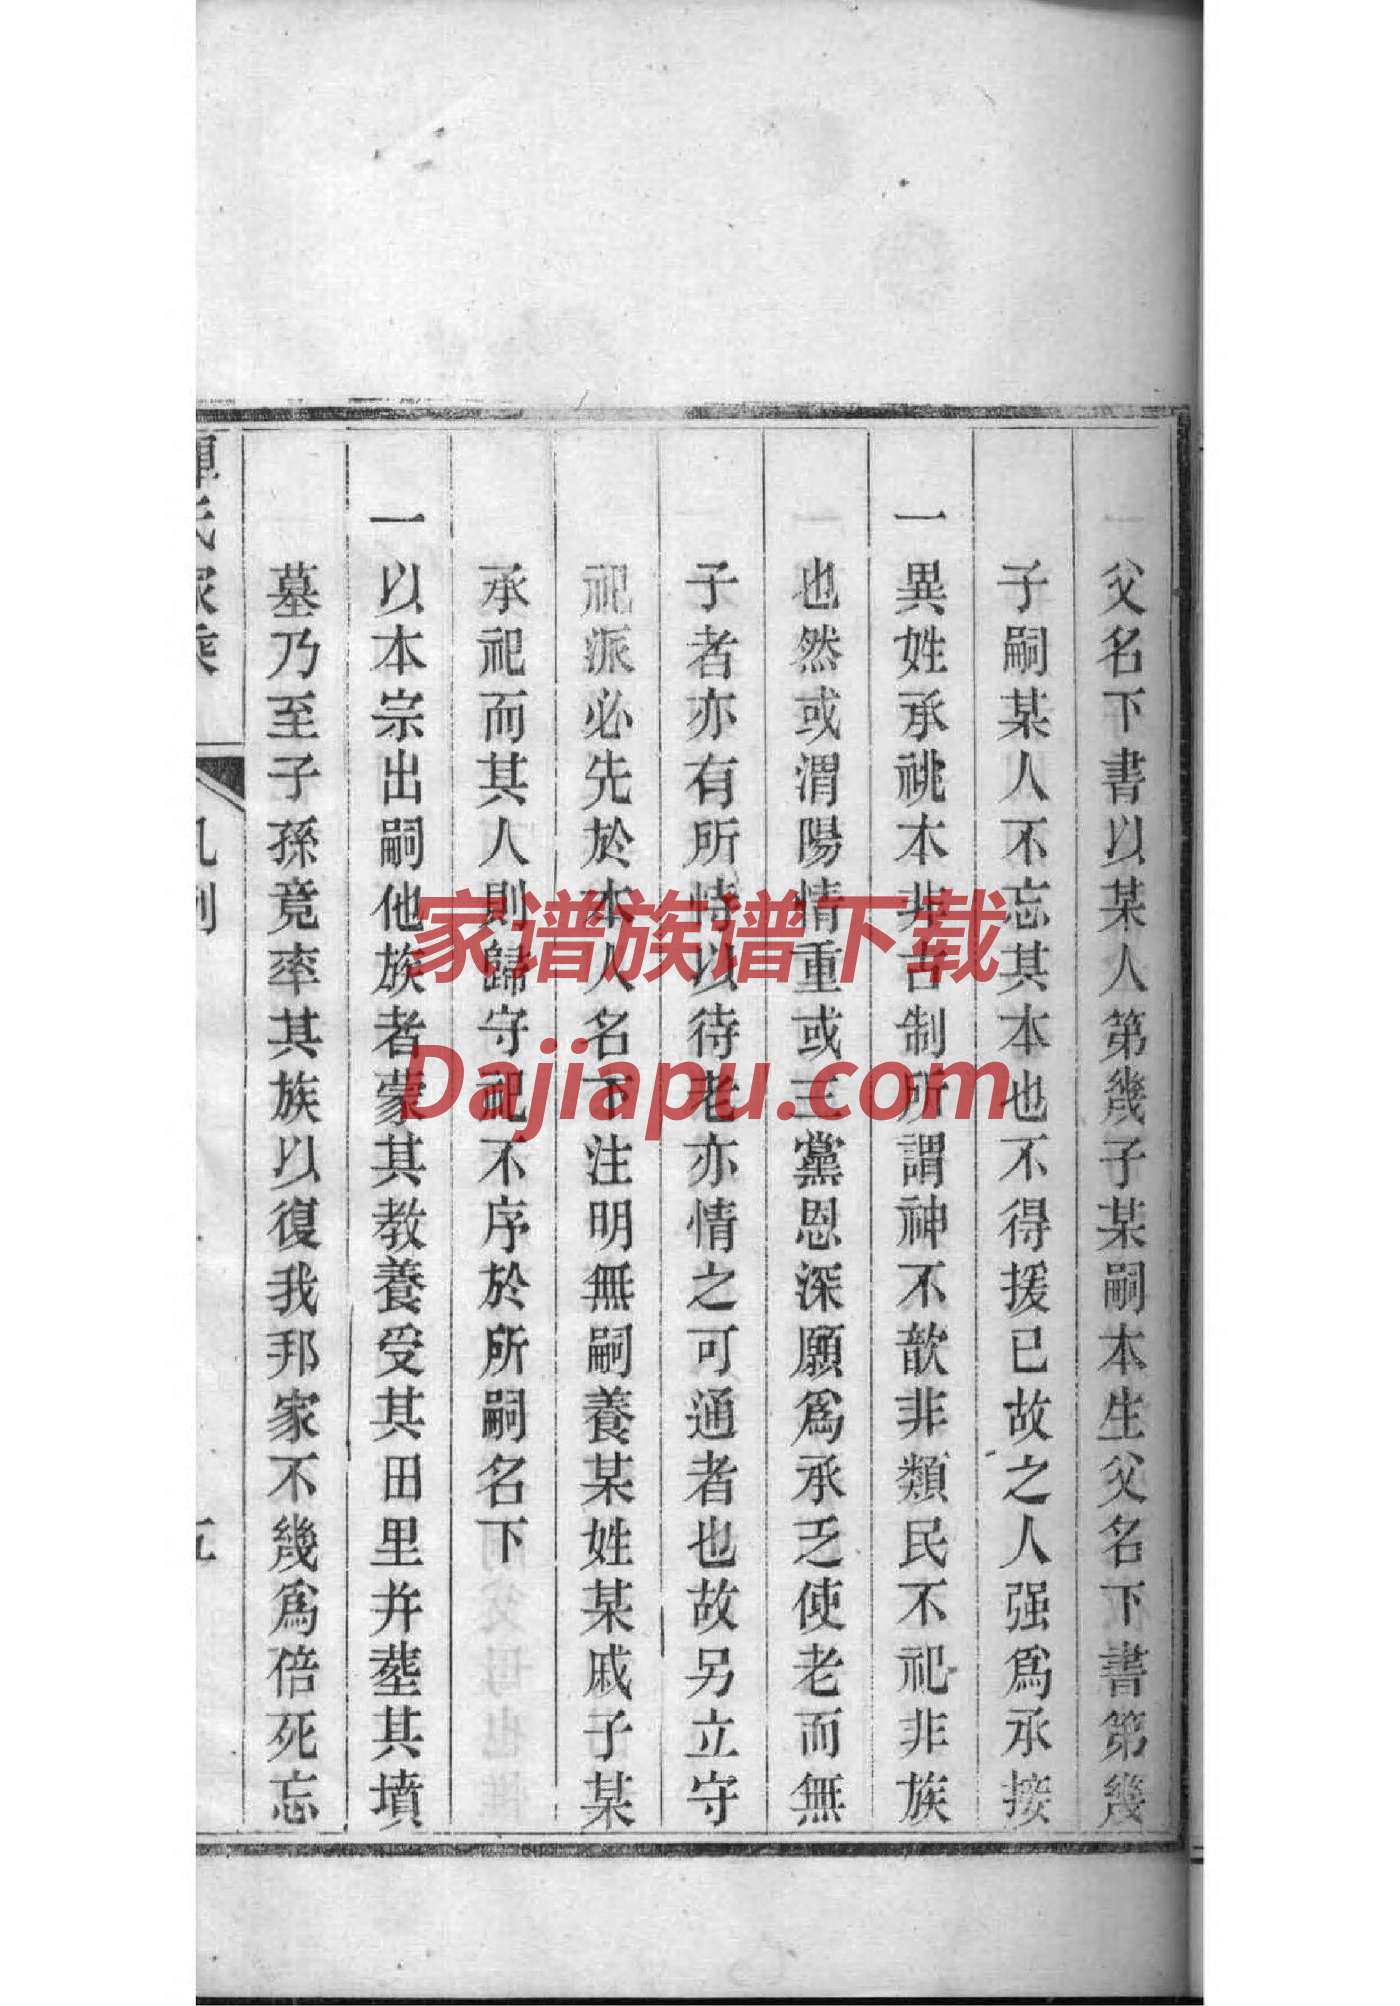 父名下書以某人第幾子某嗣本生父名下書第幾
子嗣某人不忘其本也不得援已故之人强爲承接
一異姓承祧本非古制所謂神不歆非類民不祀非族
也然或渭陽情重或三黨恩深願爲承乏使老而無
子者亦有所恃以待老亦情之可通者也故另立守
祀派必先於本人名下注明無嗣養某姓某戚子某
承祀而其人則歸守祀不序於所嗣名下
一以本宗出嗣他族者蒙其教養受其田里并塟其墳
墓乃至子孫竟率其族以復我邦家不幾爲倍死忘
氏家乘
凡例
五
家谱族谱下载
Dajiapu.com